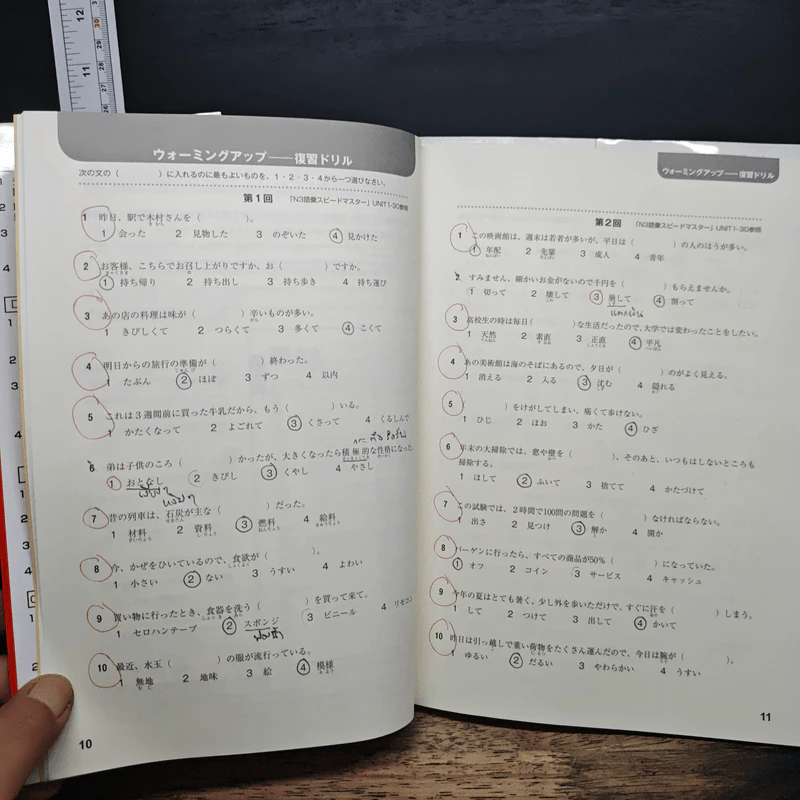 ウォーミングアップ――復習ドリル
次の文の（　　　）に入れるのに最もよいものを、1・2・3・4から一つ選びなさい。
第1回 「N3語彙スピードマスター」UNIT1-30参照
1 昨日、駅で木村さんを（　　　）。
1 会った 2 見物した 3 のぞいた 4 見かけた
2 お客様、こちらでお召し上がりですか、お（　　　）ですか。
1 持ち帰り 2 持ち出し 3 持ち歩き 4 持ち運び
3 あの店の料理は味が（　　　）辛いものが多い。
1 きびしくて 2 つらくて 3 多くて 4 こくて
4 明日からの旅行の準備が（　　　）終わった。
1 たぶん 2 ほぼ 3 ずつ 4 以内
5 これは3週間前に買った牛乳だから、もう（　　　）いる。
1 かたくなって 2 よごれて 3 くさって 4 くるしんで
6 弟は子供のころ（　　　）かったが、大きくなったら積極的な性格になった。
1 おとなし 2 きびし 3 くやし 4 やさし
7 昔の列車は、石炭が主な（　　　）だった。
1 材料 2 資料 3 燃料 4 給料
8 今、かぜをひいているので、食欲が（　　　）。
1 小さい 2 ない 3 うすい 4 よわい
9 買い物に行ったとき、食器を洗う（　　　）を買って来て。
1 セロハンテープ 2 スポンジ 3 ビニール 4 リモコン
10 最近、水玉（　　　）の服が流行っている。
1 無地 2 地味 3 絵 4 模様
10
ウォーミングアップ――復習ドリル
第2回 「N3語彙スピードマスター」UNIT1-30参照
1 この映画館は、週末は若者が多いが、平日は（　　　）の人のほうが多い。
1 年配 2 先輩 3 成人 4 青年
2 すみません、細かいお金がないので千円を（　　　）もらえませんか。
1 切って 2 壊して 3 崩して 4 割って
3 高校生の時は毎日（　　　）な生活だったので、大学では変わったことをしたい。
1 天然 2 素直 3 正直 4 平凡
4 あの美術館は海のそばにあるので、夕日が（　　　）のがよく見える。
1 消える 2 入る 3 沈む 4 隠れる
5 （　　　）をけがしてしまい、痛くて歩けない。
1 ひじ 2 ほお 3 かた 4 ひざ
6 年末の大掃除では、窓や壁を（　　　）、そのあと、いつもはしないところも
掃除する。
1 ほして 2 ふいて 3 捨てて 4 かたづけて
7 この試験では、2時間で100問の問題を（　　　）なければならない。
1 出さ 2 見つけ 3 解か 4 開か
8 バーゲンに行ったら、すべての商品が50％（　　　）になっていた。
1 オフ 2 コイン 3 サービス 4 キャッシュ
9 今年の夏はとても暑く、少し外を歩いただけで、すぐに汗を（　　　）しまう。
1 して 2 つけて 3 出して 4 かいて
10 昨日は引っ越しで重い荷物をたくさん運んだので、今日は腕が（　　　）。
1 ゆるい 2 だるい 3 やわらかい 4 うすい
11